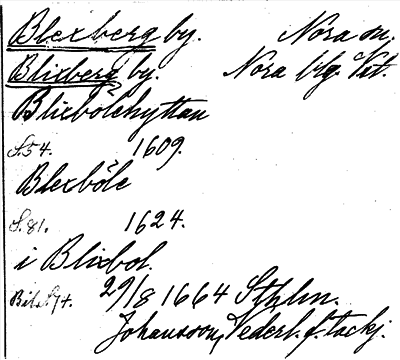 Blexberg by. Nora sn.
Blixberg by. Nora blg. Vst.
Blixbölehyttan
S.54. 1609.
Blexböle
S.81. 1624.
i Blixbol.
Bil. 29/8 1664 Sthlm.
Johansson, Nederl. f. tackj.